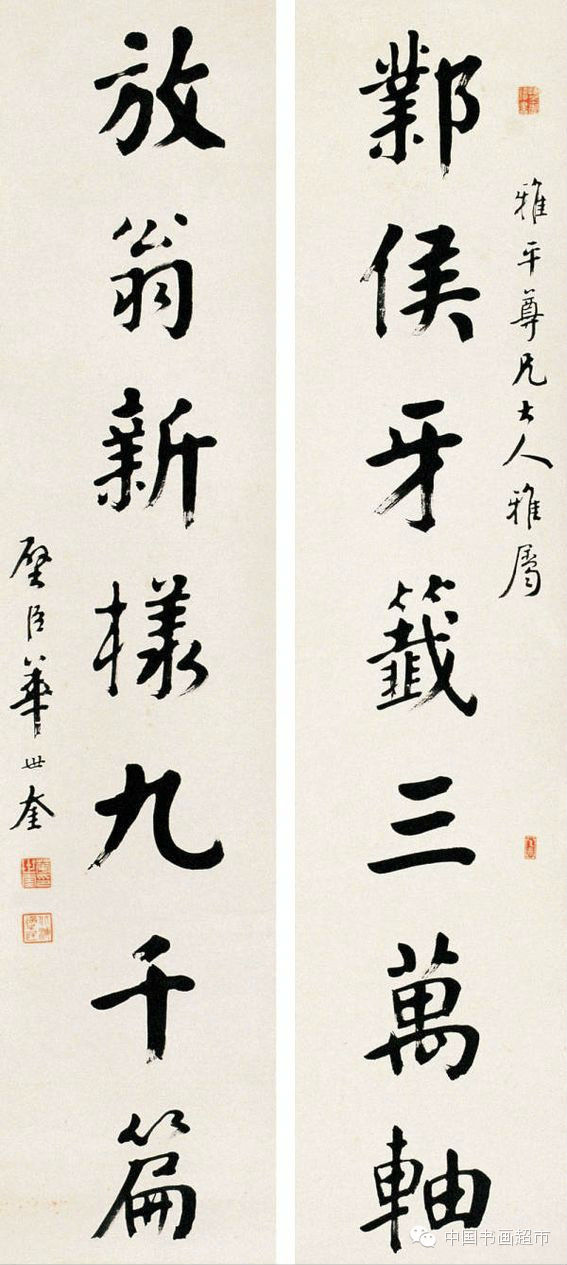 雅平尊兄大人雅属
鄴侯牙籤三萬軸
放翁新樣九千篇
壁臣華世奎
中国书画超市